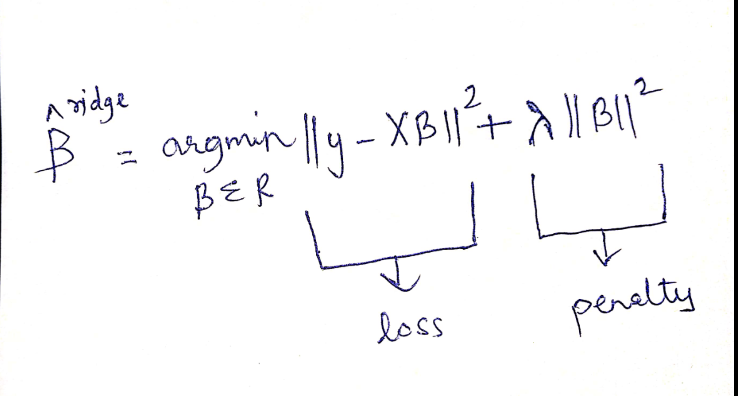 β̂ ridge = argmin ||y - Xβ||² + λ ||β||²
β ∈ R
loss
penalty